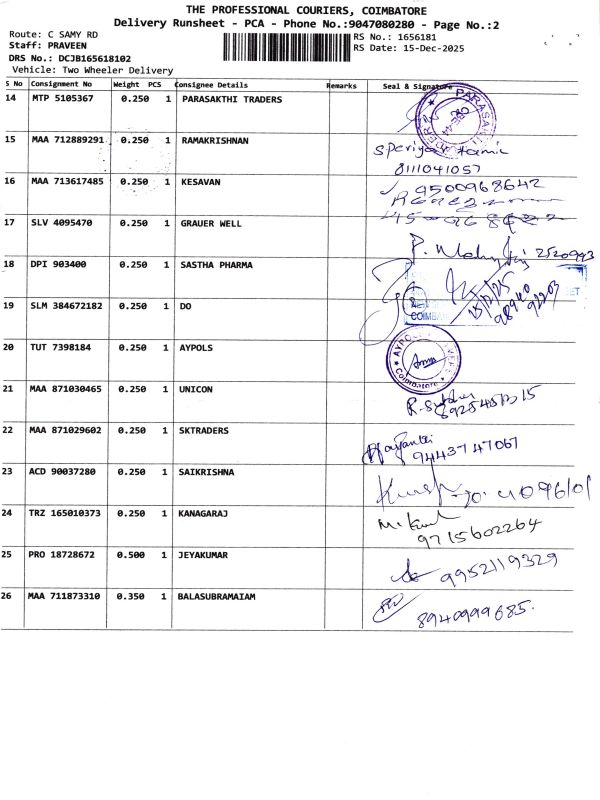 THE PROFESSIONAL COURIERS, COIMBATORE
Delivery Runsheet - PCA - Phone No.:9047080280 - Page No.:2
Route: C SAMY RD
RS No.: 1656181
Staff: PRAVEEN
RS Date: 15-Dec-2025
DRS No.: DCJB165618102
Vehicle: Two Wheeler Delivery
S No Consignment No Weight PCS Consignee Details Remarks Seal & Signature
14 MTP 5105367 0.250 1 PARASAKTHI TRADERS
15 MAA 712889291 0.250 1 RAMAKRISHNAN
8111041057
16 MAA 713617485 0.250 1 KESAVAN 9500968642
17 SLV 4095470 0.250 1 GRAUER WELL
2520993
18 DPI 903400 0.250 1 SASTHA PHARMA
15/12/25
98940
92203
19 SLM 384672182 0.250 1 DO
COIMB
20 TUT 7398184 0.250 1 AYPOLS
AYPOLS
Coimbatore
21 MAA 871030465 0.250 1 UNICON
22 MAA 871029602 0.250 1 SKTRADERS
9443747067
23 ACD 90037280 0.250 1 SAIKRISHNA
24 TRZ 165010373 0.250 1 KANAGARAJ
9715602264
25 PRO 18728672 0.500 1 JEYAKUMAR 9952119329
26 MAA 711873310 0.350 1 BALASUBRAMAIAM
8940999685.